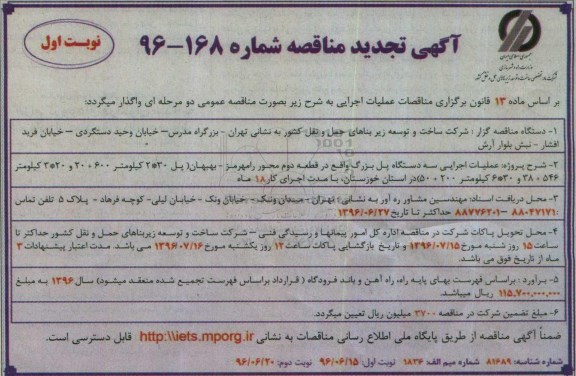 آگهی تجدید مناقصه شماره ۱۶۸-۹۶
نوبت اول
جمهوری اسلامی ایران
وزارت راه و شهرسازی
بر اساس ماده ۱۳ قانون برگزاری مناقصات عملیات اجرایی به شرح زیر بصورت مناقصه عمومی دو مرحله ای واگذار میگردد:
۱- دستگاه مناقصه گزار : شرکت ساخت و توسعه زیربناهای حمل و نقل کشور به نشانی تهران - بزرگراه مدرس- خیابان وحید دستگردی - خیابان فرید
افشار - نبش بلوار آرش
۲- شرح پروژه: عملیات اجرایی سه دستگاه پل بزرگ واقع در قطعه دوم محور رامهرمز - بهبهان( پل ۳۰*۲ کیلومتر ۶۰۰+۲۰ و ۲۰*۳ کیلومتر
۵۴۶+۳۸ و ۳۰*۶ کیلومتر ۲۰۰+۵۰)در استان خوزستان، با مدت اجرای کار ۱۸ ماه
۳- محل دریافت اسناد: مهندسین مشاور ره آور به نشانی: تهران - میدان ونک- خیابان ونک - خیابان لیلی- کوچه فرهاد - پلاک ۵ تلفن تماس
:۸۸۰۴۷۱۷۱- ۸۸۷۷۶۲۰۱ حداکثر تا تاریخ ۱۳۹۶/۰۶/۲۷
۴- محل تحویل پاکات شرکت در مناقصه اداره کل امور پیمانها و رسیدگی فنی – شرکت ساخت و توسعه زیربناهای حمل و نقل کشور حداکثر تا
ساعت ۱۵ روز شنبه مورخ ۱۳۹۶/۰۷/۱۵ و تاریخ بازگشایی پاکات ساعت ۱۲ روز یکشنبه مورخ ۱۳۹۶/۰۷/۱۶ می باشد. مدت اعتبار پیشنهادات ۳
ماه از تاریخ فوق می باشد.
۵- برآورد : براساس فهرست بهای پایه راه، راه آهن و باند فرودگاه ( قرارداد براساس فهرست تجمیع شده منعقد میشود) سال ۱۳۹۶ به مبلغ
۱۱۵,۷۰۰,۰۰۰,۰۰۰ ریال میباشد.
۶- مبلغ تضمین شرکت در مناقصه ۳۷۰۰ میلیون ریال تعیین میگردد.
ضمناً آگهی مناقصه از طریق پایگاه ملی اطلاع رسانی مناقصات به نشانی http:\\iets.mporg.ir قابل دسترسی است.
شماره شناسه: ۸۱۶۸۹ شماره میم الف: ۱۸۳۶ نوبت اول: ۹۶/۰۶/۱۵ نوبت دوم: ۹۶/۰۶/۲۰